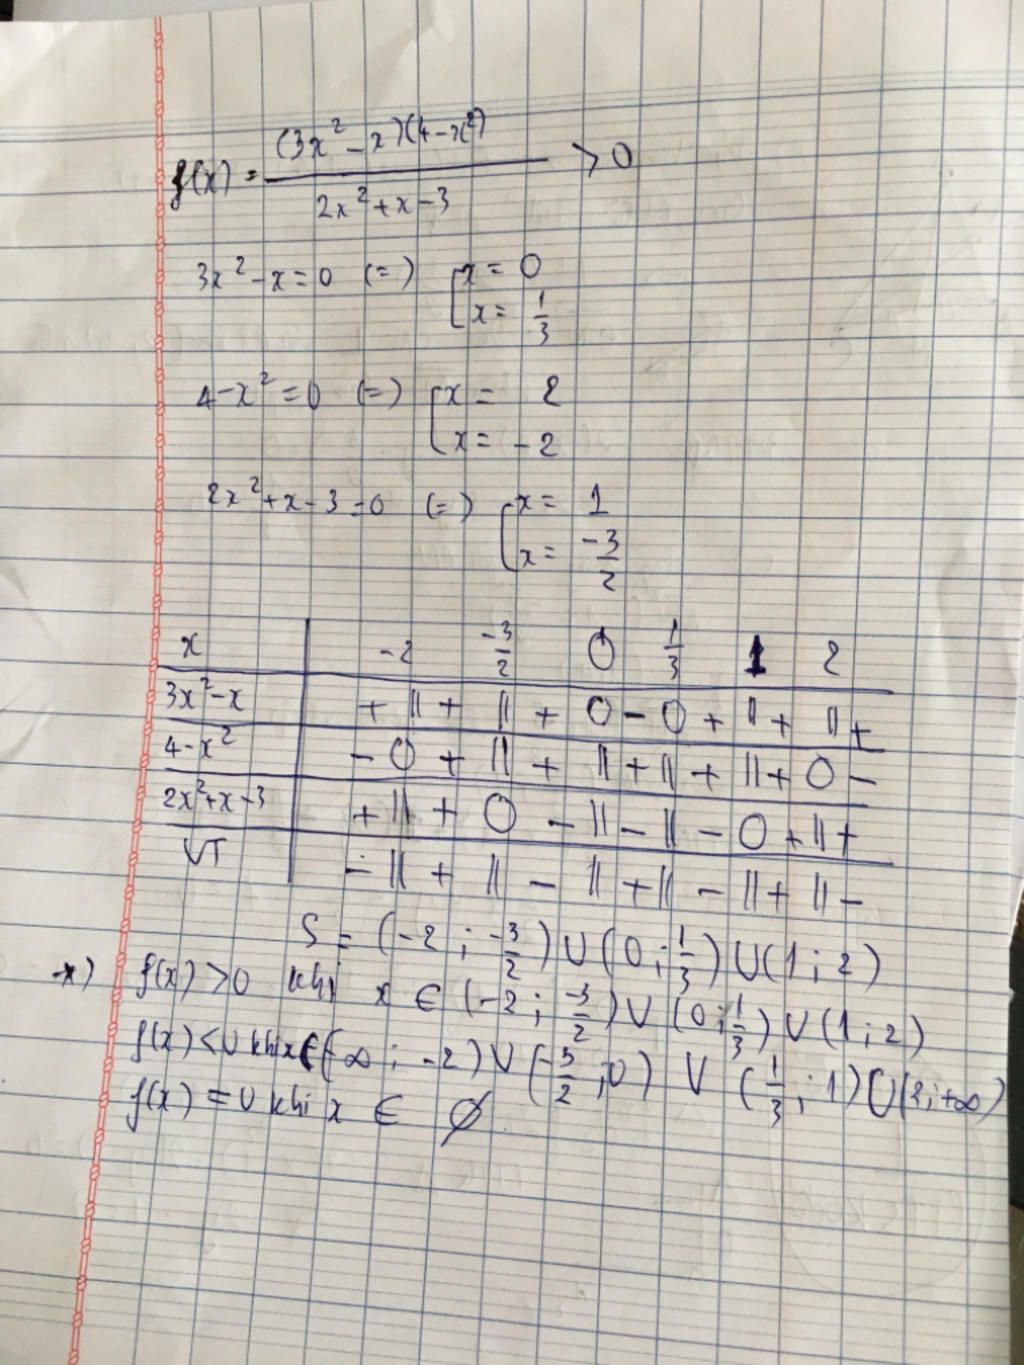 f(x) = (3x² - x)(4 - x²) / 2x² + x - 3 > 0
3x² - x = 0 (=) [ x = 0
x = 1/3
4 - x² = 0 (=) [ x = 2
x = -2
2x² + x - 3 = 0 (=) [ x = 1
x = -3/2
x | -2 -3/2 0 1/3 1 2
3x² - x | + || + || + 0 - 0 + || + || +
4 - x² | - 0 + || + || + || + || + 0 -
2x² + x - 3 | + || + 0 - || - || - 0 + || +
VT | - || + || - || + || - || + || -
S = (-2 ; -3/2) U (0 ; 1/3) U (1 ; 2)
*) f(x) > 0 khi x ∈ (-2 ; -3/2) U (0 ; 1/3) U (1 ; 2)
f(x) < 0 khi x ∈ (-∞ ; -2) U (-3/2 ; 0) U (1/3 ; 1) U (2 ; +∞)
f(x) = 0 khi x ∈ ∅